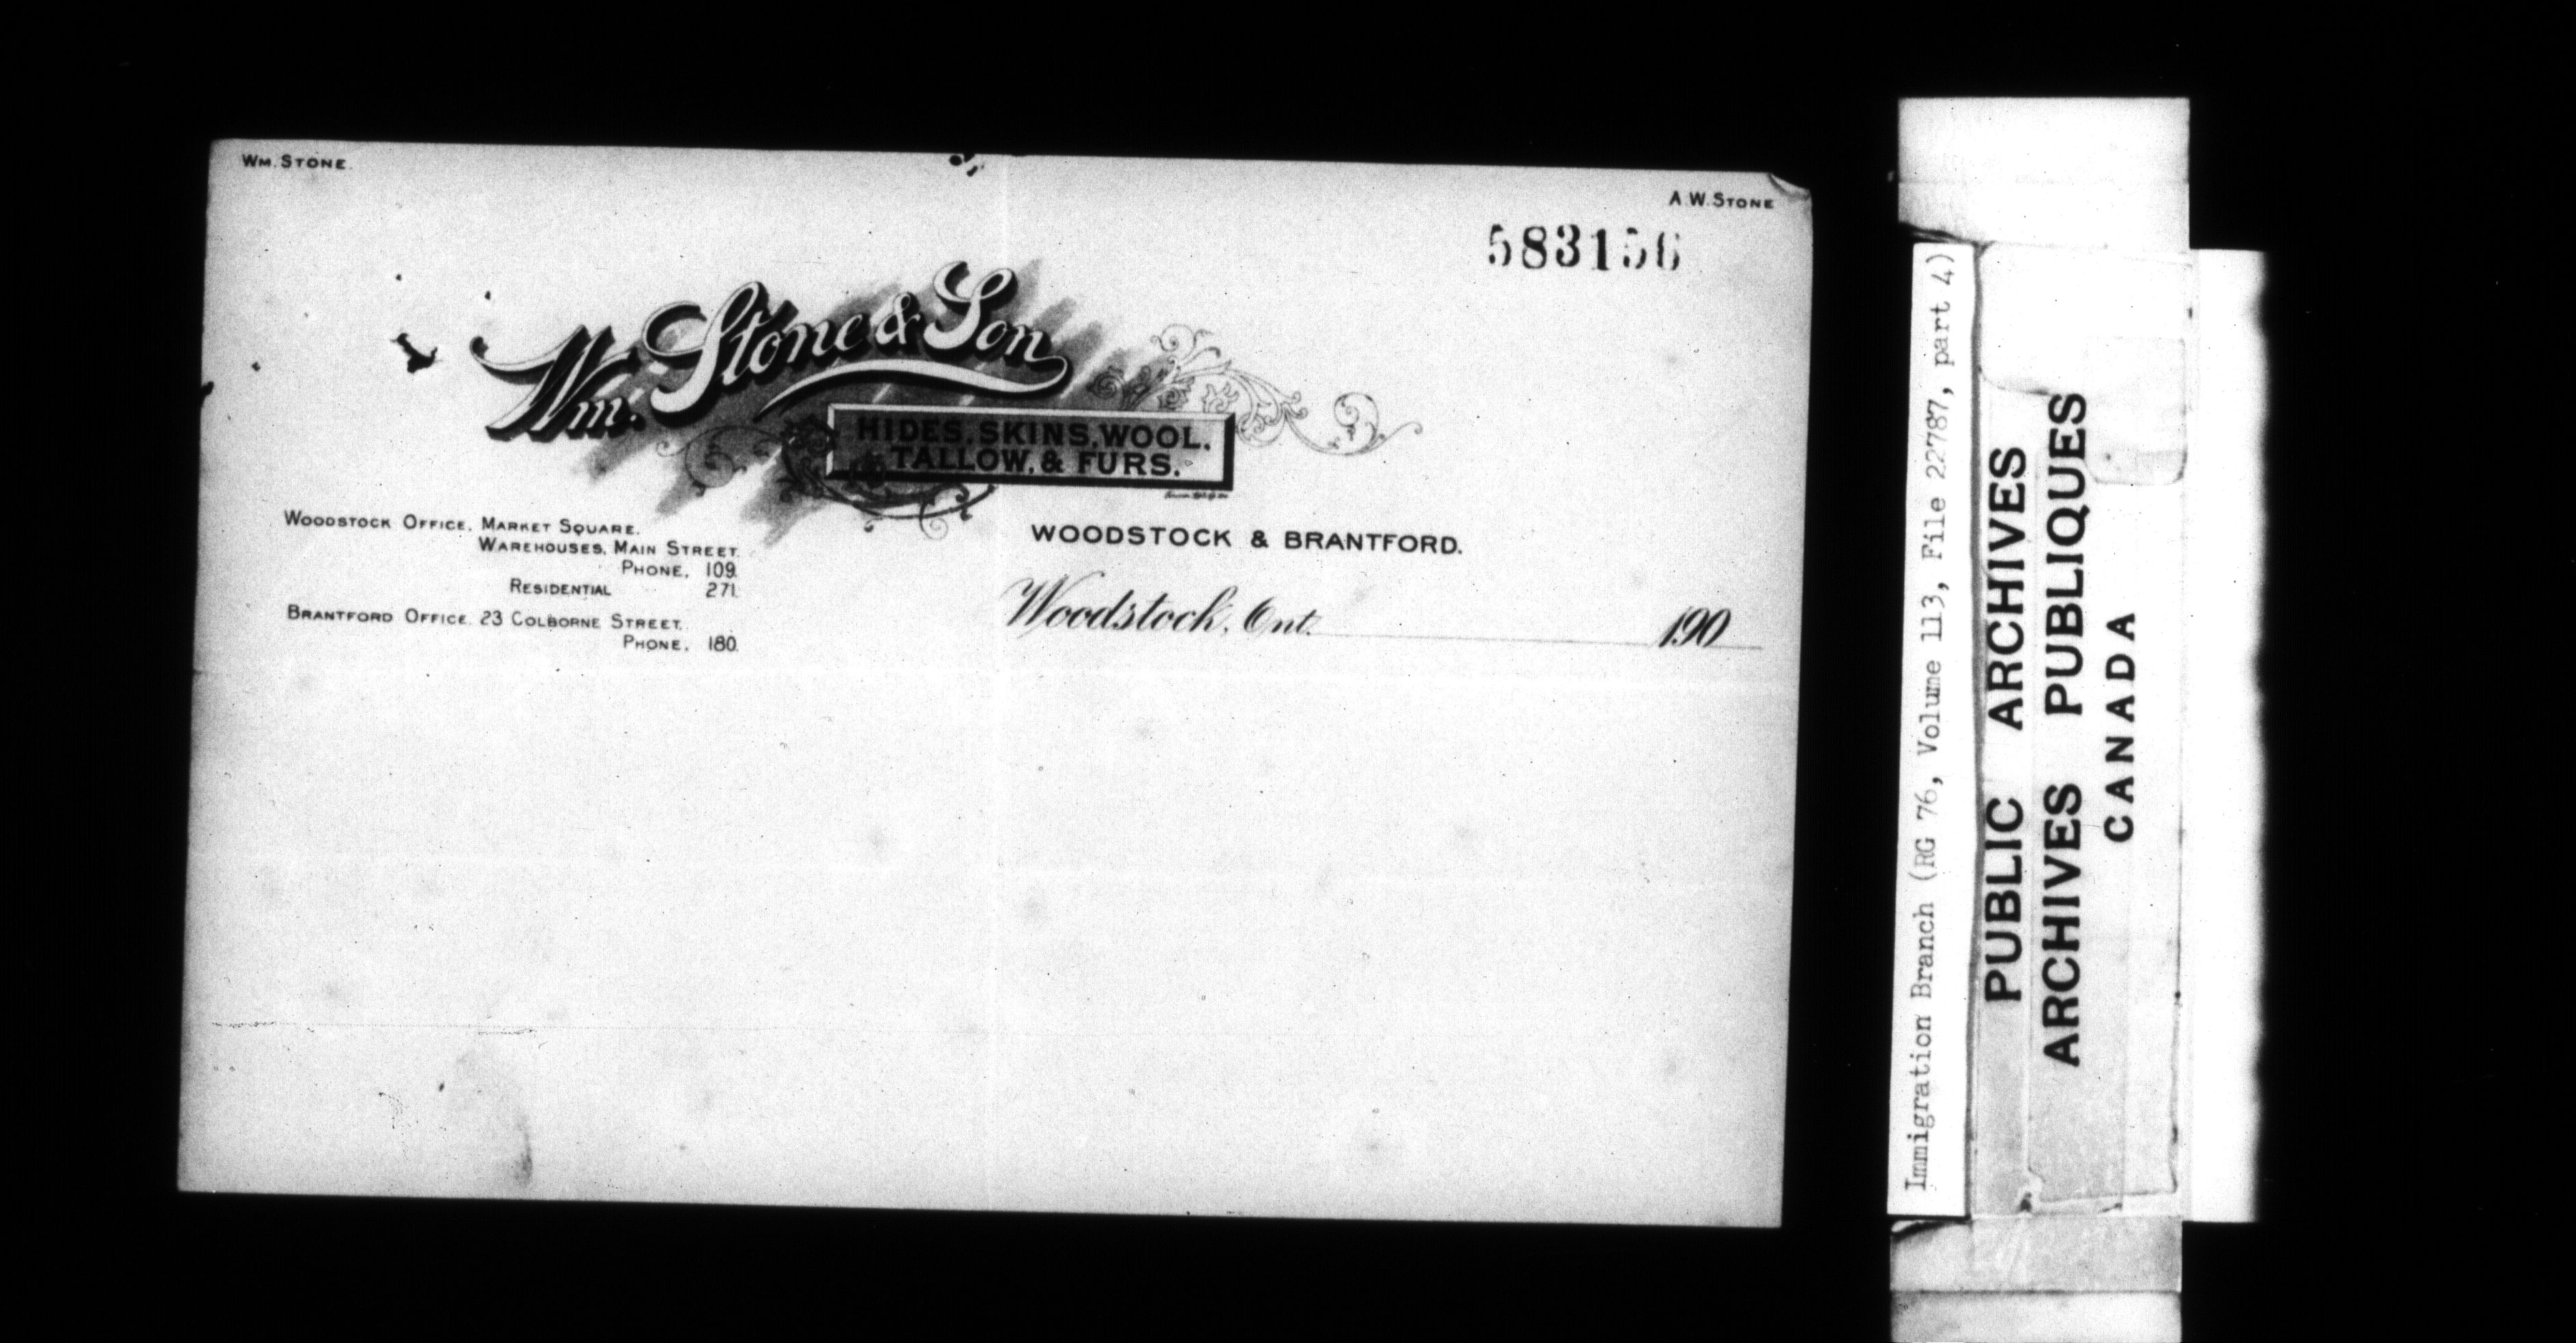 WM. STONE.
A. W. STONE
583156
Wm. Stone & Son
HIDES, SKINS, WOOL,
TALLOW, & FURS.
WOODSTOCK OFFICE, MARKET SQUARE.
WAREHOUSES, MAIN STREET.
PHONE, 109.
RESIDENTIAL 271.
BRANTFORD OFFICE, 23 COLBORNE STREET.
PHONE, 180.
WOODSTOCK & BRANTFORD.
Woodstock, Ont. 190
Immigration Branch (RG 76, Volume 113, File 22787, part 4)
PUBLIC ARCHIVES
ARCHIVES PUBLIQUES
CANADA